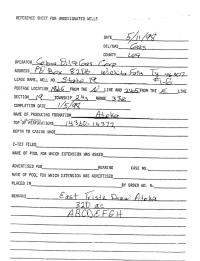 REFERENCE SHEET FOR UNDESIGNATED WELLS
DATE 5/11/98
OIL/GAS Gas
COUNTY Lea
OPERATOR Oil & Gas Corp
ADDRESS PO Box 8206 Wichita Falls Tx
LEASE NAME, WELL NO. State 19 #1-G
FOOTAGE LOCATION FROM THE N LINE AND FROM THE E LINE
SECTION 19 TOWNSHIP 24s RANGE 33e
COMPLETION DATE 1/5/98
NAME OF PRODUCING FORMATION Atoka
TOP OF PERFORATIONS 14360-14372
DEPTH TO CASING SHOE
C-123 FILED
NAME OF POOL FOR WHICH EXTENSION WAS ASKED
ADVERTISED FOR HEARING CASE NO.
NAME OF POOL FOR WHICH EXTENSION WAS ADVERTISED
PLACED IN BY ORDER NO. R-
REMARKS East Triste Draw Atoka
320 ac
ABCDEFGH